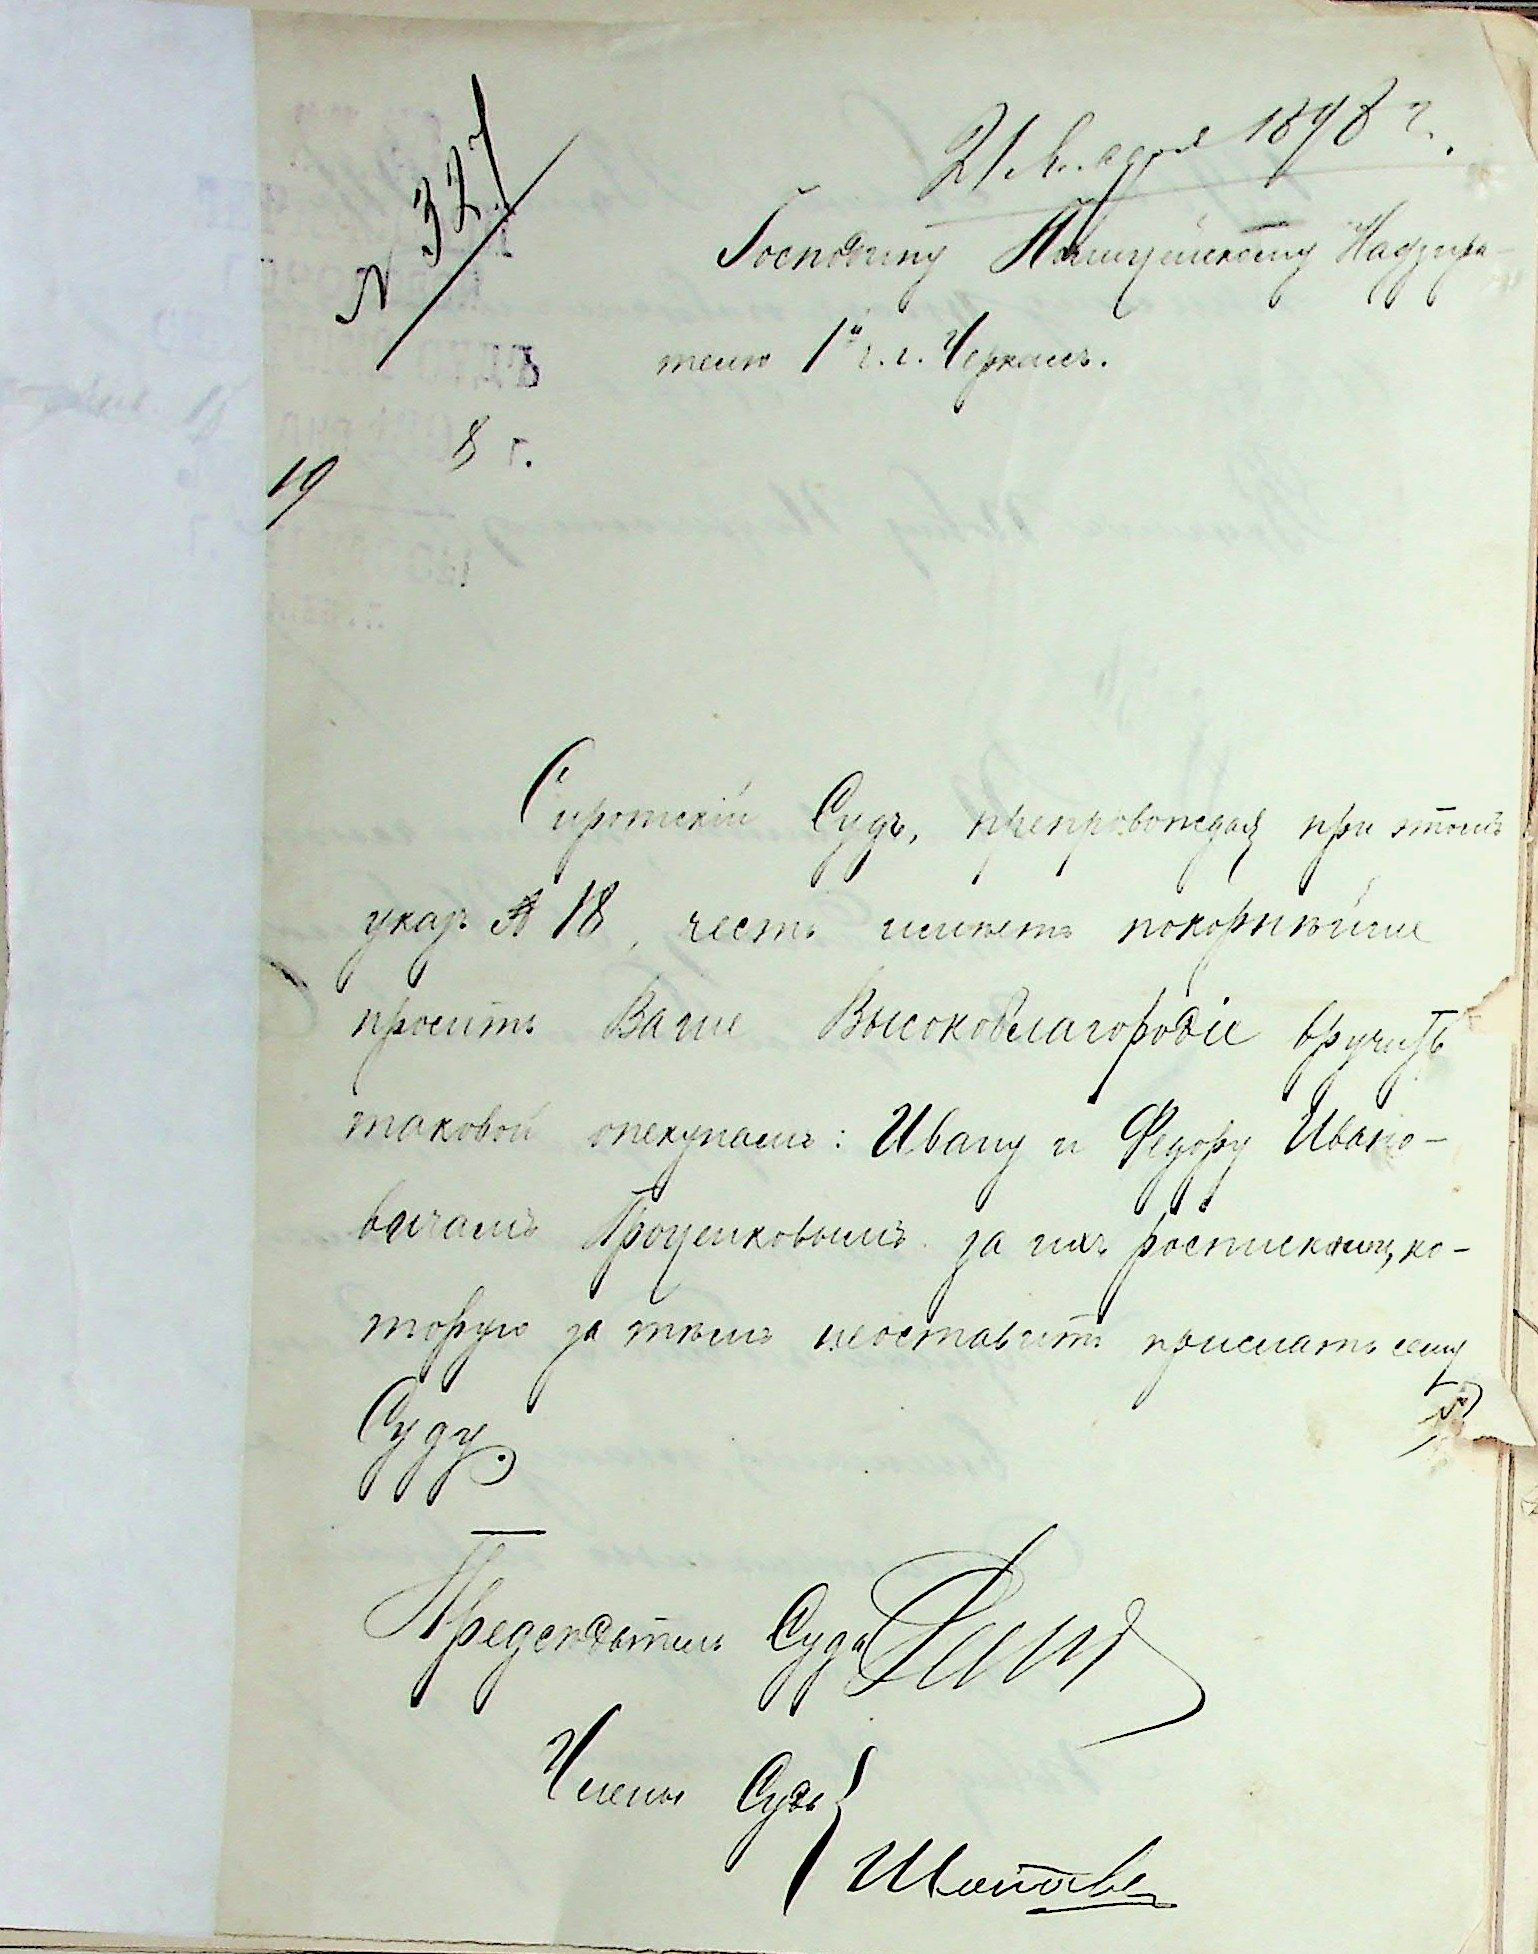 № 327
21 1898 г.
Господину Полицейскому Надзира-
телю 1й ч. г. Черкасъ.
8 г.
19
Сиротскій Судъ, препровождая при этомъ
указъ № 18, честь имѣетъ покорнѣйше
просить Ваше Высокоблагородіе вручить
таковой опекунамъ: Ивану и Федору Ивано-
вичамъ Проценковымъ за ихъ росписками, ко-
торую за тѣмъ неоставить прислать сему
Суду.
Предсѣдатель Суда
Члены Суда